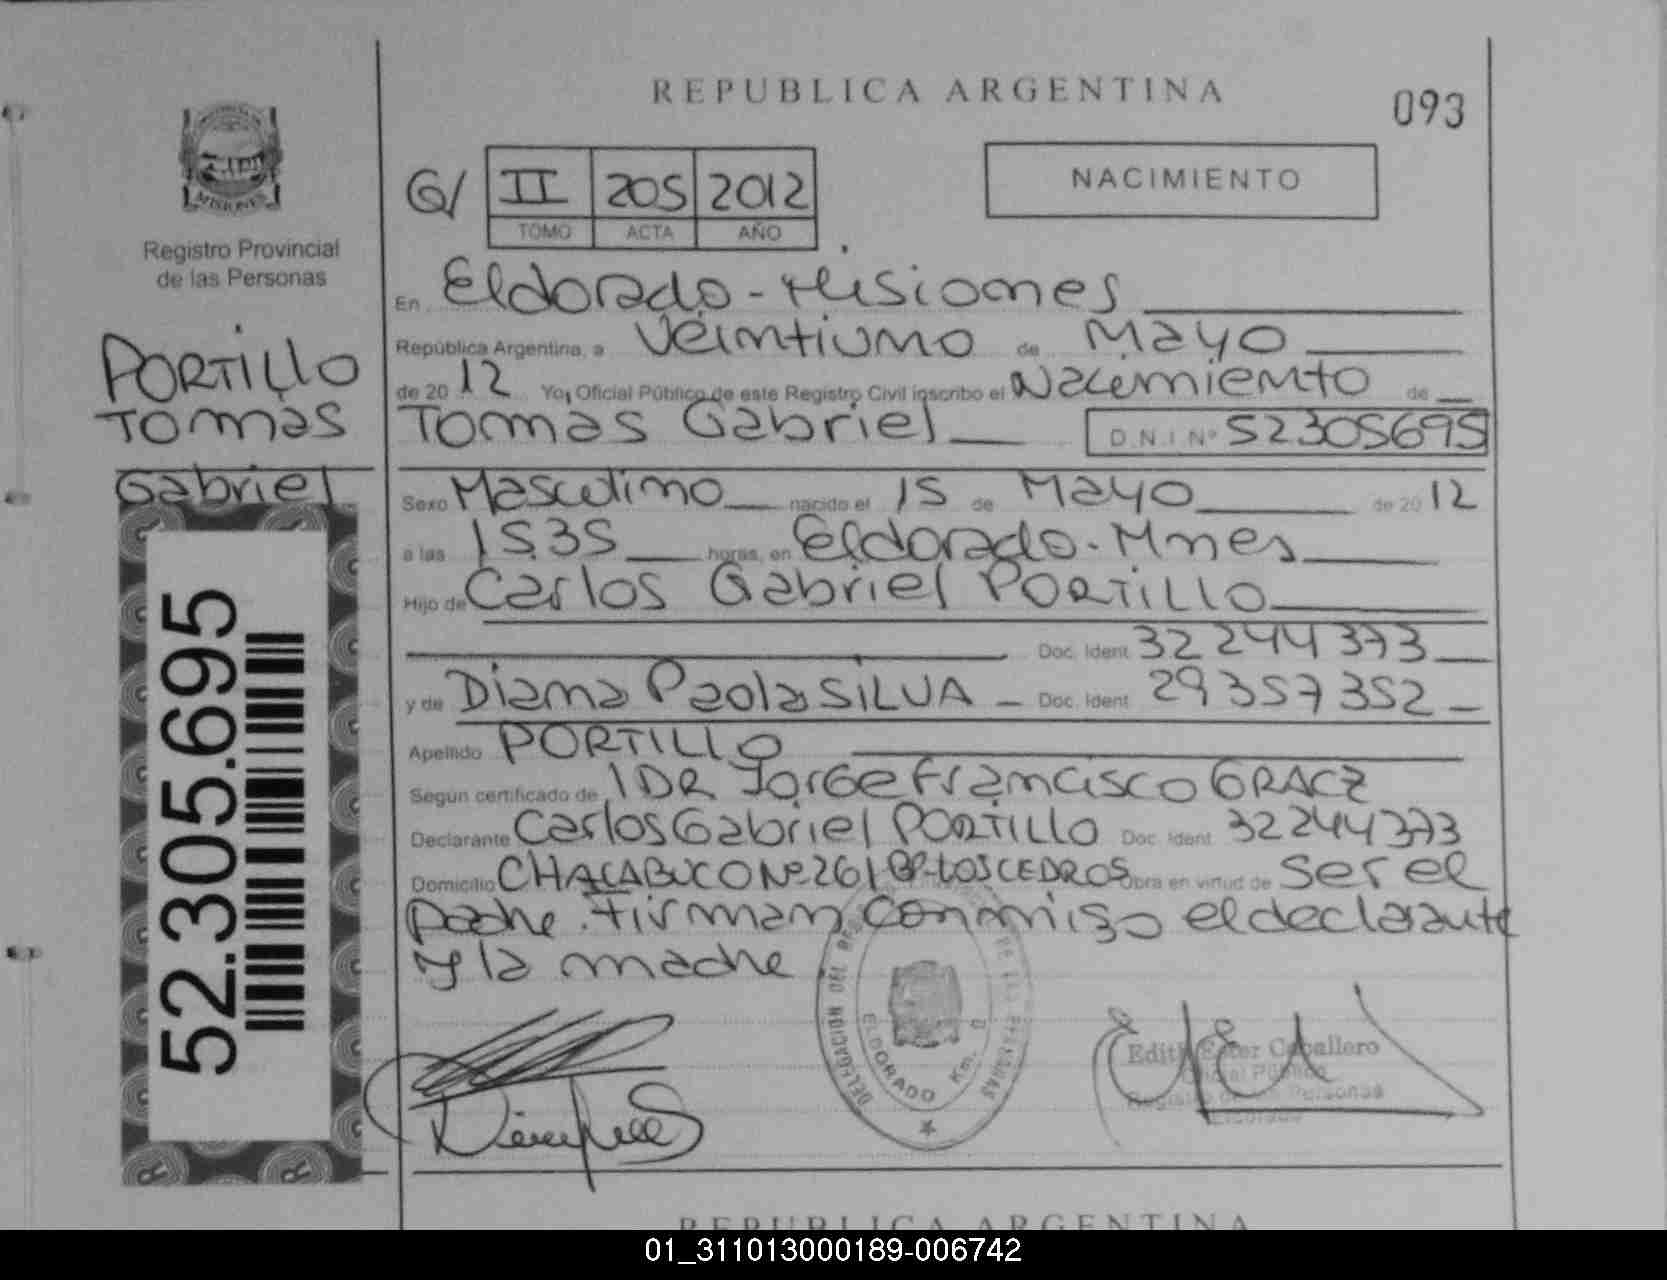 REPUBLICA ARGENTINA
093
MISIONES
Registro Provincial
de las Personas
G/ II 205 2012
TOMO ACTA AÑO
NACIMIENTO
PORTILLO
Tomás
Gabriel
52.305.695
En Eldorado - Misiones
República Argentina, a Veintiuno de Mayo
de 20 12 Yo, Oficial Público de este Registro Civil inscribo el Nacimiento de
Tomás Gabriel D.N.I. Nº 52305695
Sexo Masculino nacido el 15 de Mayo de 20 12
a las 15.35 horas, en Eldorado - Mnes
Hijo de Carlos Gabriel PORTILLO
Doc. Ident. 32 244 373
y de Diana Paola SILVA Doc. Ident. 29 357 352
Apellido PORTILLO
Según certificado de DR Jorge Francisco GRACZ
Declarante Carlos Gabriel PORTILLO Doc. Ident. 32244373
Domicilio CHACABUCO Nº 261 Bº LOS CEDROS Obra en virtud de Ser el
padre. Firman conmigo el declarante
y la madre
DELEGACION DEL DE LAS PERSONAS
ELDORADO Km.
Edith Ester Caballero
Oficial Público
Registro de las Personas
Eldorado
REPUBLICA ARGENTINA
01_311013000189-006742